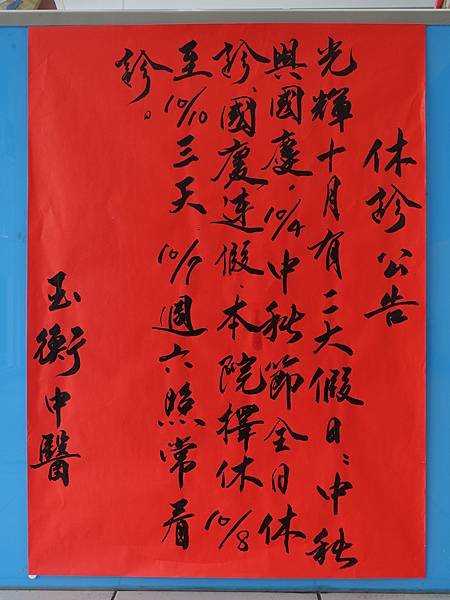 休診公告
光輝十月有二大假日：中秋
與國慶。10/4中秋節全日休
診、國慶連假、本院擇休10/8
至10/10三天。10/7週六照常看
診。
玉衡中醫